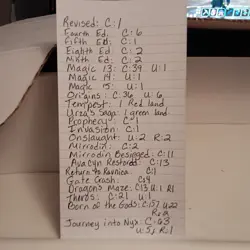 Revised: C:1
Fourth Ed: C:6
Fifth Ed: C:1
Eighth Ed: C:2
Ninth Ed: C:2
Magic 13: C:39 U:1
Magic 14: U:1
Magic 15: U:1
Origins: C:36 U:6
Tempest: 1 Red land
Urza's Saga: 1 green land
Prophecy: C:1
Invasion: C:1
Onslaught: U:2 R:2
Mirrodin: C:2
Mirrodin Besieged: C:11
Avacyn Restored: C:13
Return to Ravnica: C:1
Gate Crash: C:4
Dragons Maze: C:13 U:1 R:1
Theros: C:21 U:1
Born of the Gods: C:157 U:22
R:2
Journey into Nyx: C:68
U:51 R:1